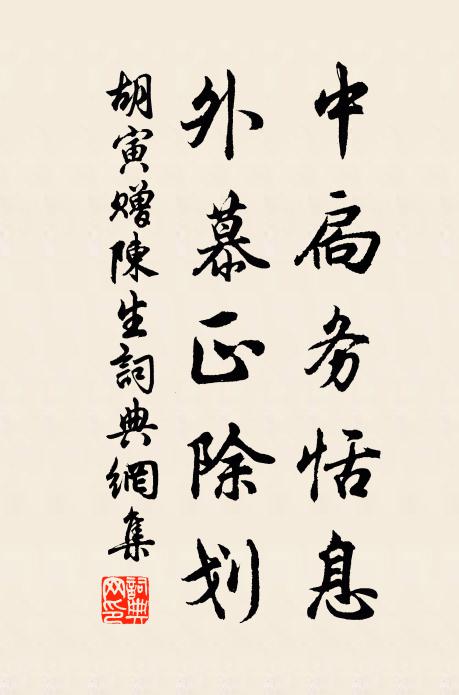 中扃务恬息
外慕正除划
胡寅赠陳生詞典網集
詞典网印